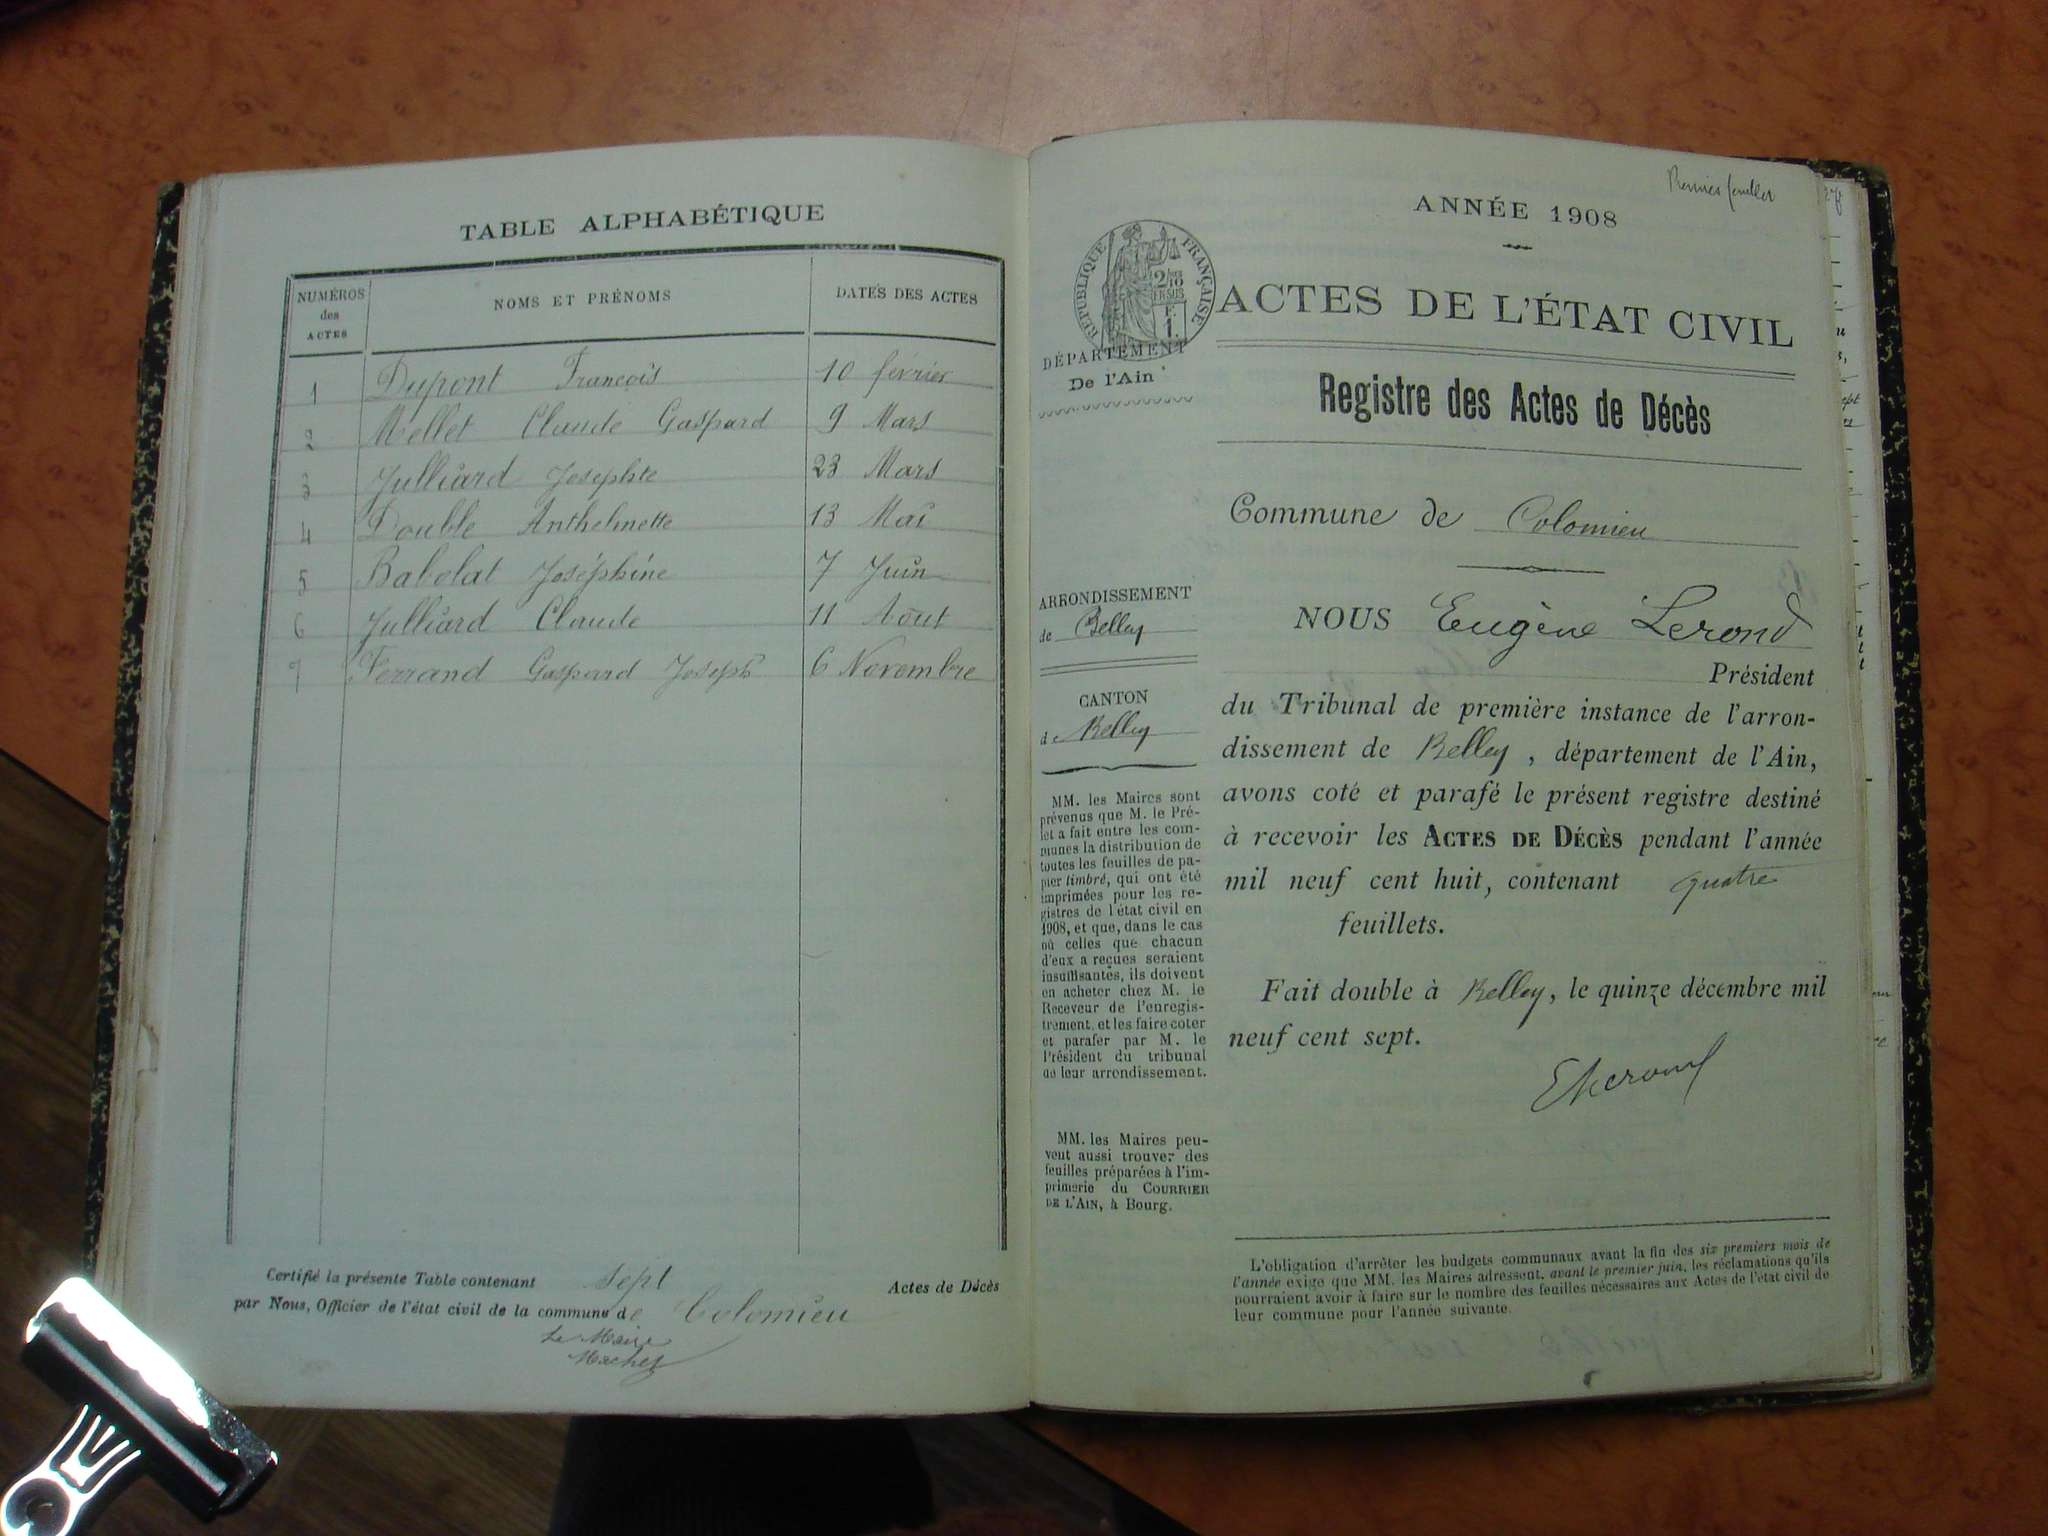 TABLE ALPHABÉTIQUE
NUMÉROS des ACTES NOMS ET PRÉNOMS DATES DES ACTES
1 Dupont François 10 février
2 Mellet Claude Gaspard 9 Mars
3 Julliard Josephte 23 Mars
4 Double Anthelmette 13 Mai
5 Babolat Joséphine 7 Juin
6 Julliard Claude 11 Août
7 Ferrand Gaspard Joseph 6 Novembre
Certifié la présente Table contenant sept Actes de Décès
par Nous, Officier de l'état civil de la commune de Colomieu
Le Maire
Machet
Premier feuillet
ANNÉE 1908
RÉPUBLIQUE FRANÇAISE
2/10 EN SUS
F. 1.
ACTES DE L'ÉTAT CIVIL
DÉPARTEMENT
De l'Ain
Registre des Actes de Décès
Commune de Colomieu
ARRONDISSEMENT
de Belley
CANTON
de Belley
MM. les Maires sont
prévenus que M. le Pré-
fet a fait entre les com-
munes la distribution de
toutes les feuilles de pa-
pier timbré, qui ont été
imprimées pour les re-
gistres de l'état civil en
1908, et que, dans le cas
où celles que chacun
d'eux a reçues seraient
insuffisantes, ils doivent
en acheter chez M. le
Receveur de l'enregis-
trement, et les faire coter
et parafer par M. le
Président du tribunal
de leur arrondissement.
MM. les Maires peu-
vent aussi trouver des
feuilles préparées à l'im-
primerie du COURRIER
DE L'AIN, à Bourg.
NOUS Eugène Lerond
Président
du Tribunal de première instance de l'arron-
dissement de Belley, département de l'Ain,
avons coté et parafé le présent registre destiné
à recevoir les ACTES DE DÉCÈS pendant l'année
mil neuf cent huit, contenant quatre
feuillets.
Fait double à Belley, le quinze décembre mil
neuf cent sept.
ELerond
L'obligation d'arrêter les budgets communaux avant la fin des six premiers mois de
l'année exige que MM. les Maires adressent, avant le premier juin, les réclamations qu'ils
pourraient avoir à faire sur le nombre des feuilles nécessaires aux Actes de l'état civil de
leur commune pour l'année suivante.